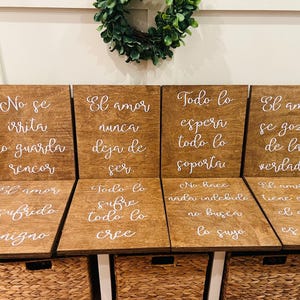 No se
irrita
no guarda
rencor
El amor
nunca
deja de
ser
Todo lo
espera
todo lo
soporta
El am
se go
de la
verda
El amor
sufrido
nigno
Todo lo
sufre
todo lo
cree
No hace
nada indebido
no busca
lo suyo
El am
tiene
el
es